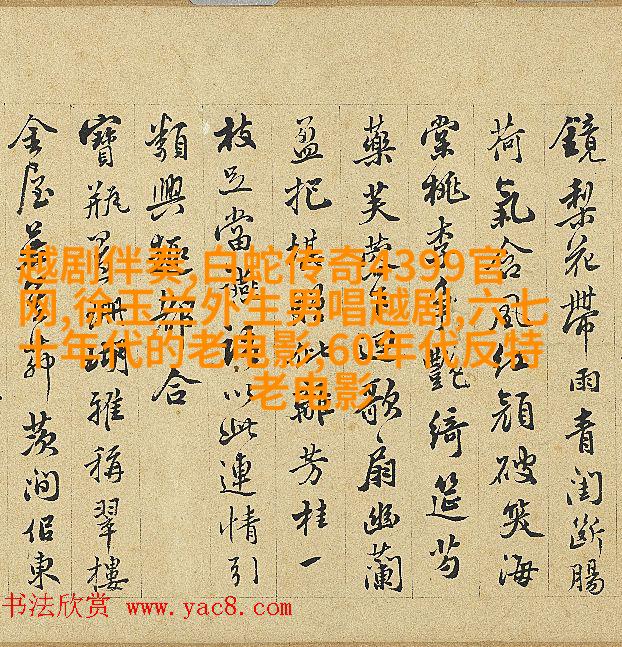 鏡梨花帶雨青閨斷腸
荷氣含風紅顔破笑海
棠桃李爭艷綺筵芍
藥芙蓉迴歌扇幽蘭
盈把堪芳桂一
枝足當以此連情引
類興極都合
寶瓶珊瑚雅稱翠樓
金屋澗侶東
越剧伴奏,白蛇传奇4399官
网,徐玉兰外生男唱越剧,六七
十年代的老电影,60年代反特
老电影
书法欣赏 www.yac8.com